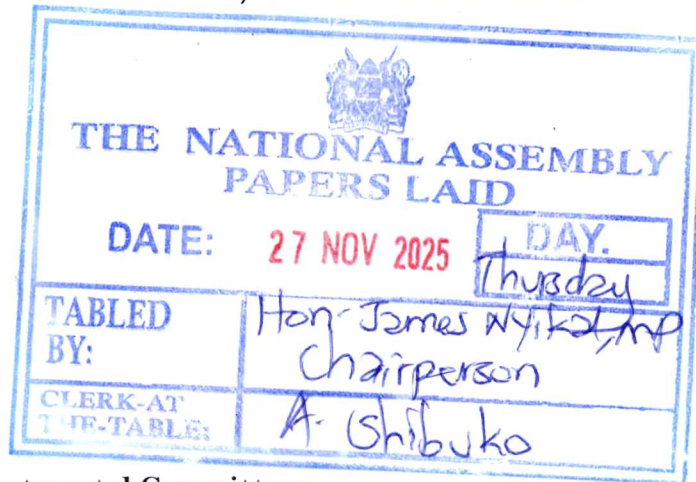 THE NATIONAL ASSEMBLY
PAPERS LAID
DATE: 27 NOV 2025 DAY.
Thursday
TABLED BY: Hon. James Nyikal, MP
Chairperson
CLERK-AT THE-TABLE: A. Shibuko